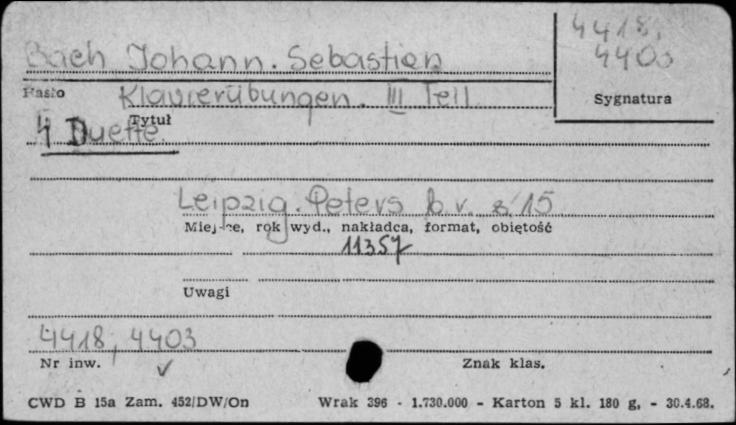 4418,
4403
Bach Johann. Sebastian
Hasło
Klavierübungen. III Teil
Sygnatura
Tytuł
4 Duette.
Leipzig. Peters b.r. s. 15
Miejsce, rok wyd., nakładca, format, objętość
11357
Uwagi
4418, 4403
Nr inw.
Znak klas.
CWD B 15a Zam. 452/DW/On Wrak 396 - 1.730.000 - Karton 5 kl. 180 g. - 30.4.68.